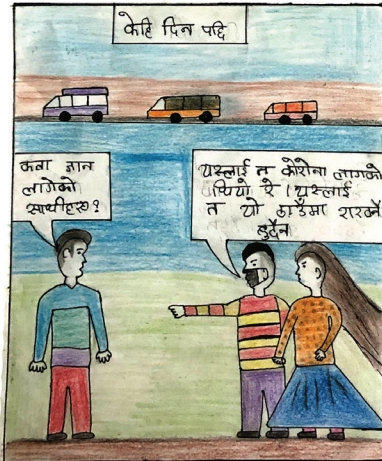 केहि दिन पछि
कता जान
लागेको
साथीहरु?
यस्लाई त कोरोना लागेको
थियो रे । यस्लाई
त यो ठाउँमा राख्नै
हुदैन